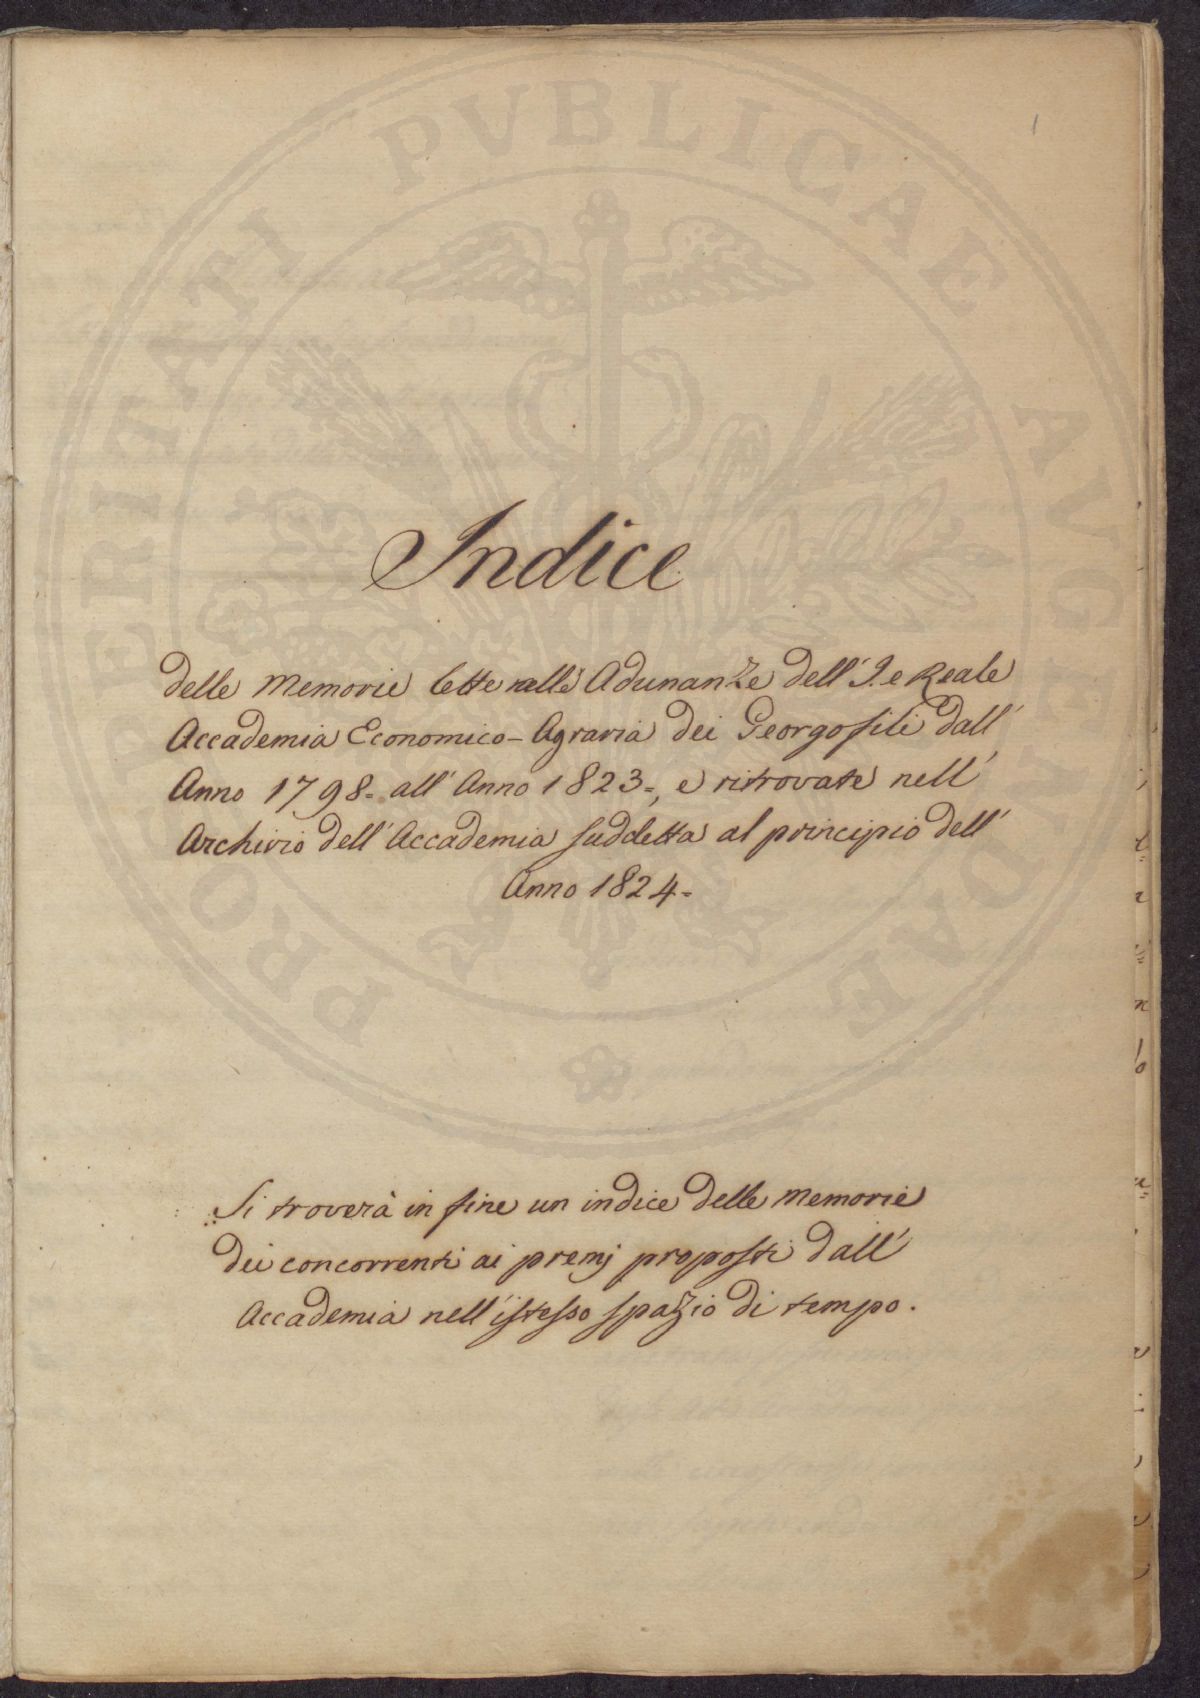 1
Indice
delle Memorie lette nelle Adunanze dell' I. e Reale
Accademia Economico-Agraria dei Georgofili dall'
Anno 1798= all' Anno 1823=, e ritrovate nell'
Archivio dell' Accademia suddetta al principio dell'
Anno 1824=
Si troverà in fine un indice delle Memorie
dei concorrenti ai premj proposti dall'
Accademia nell' istesso spazio di tempo.
PROSPERITATI PVBLICAE AVGENDAE